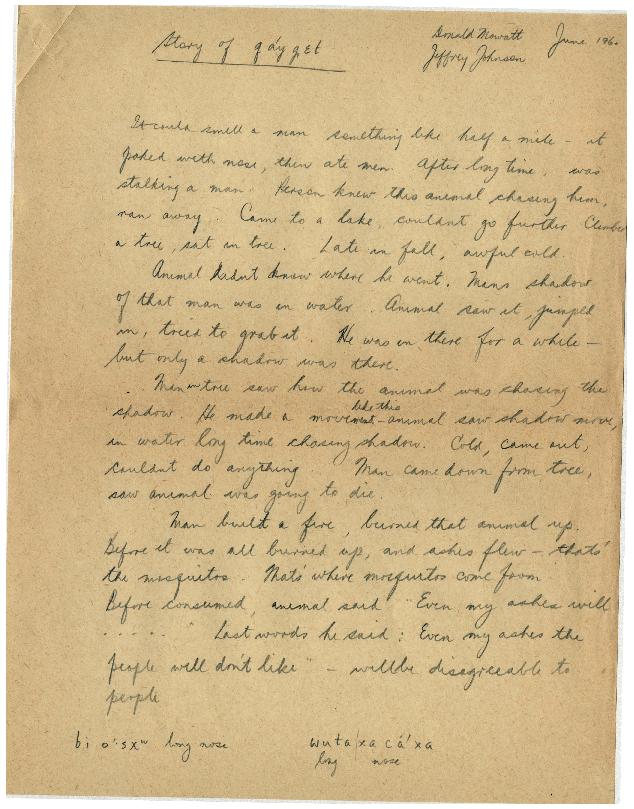 Story of gáyget
Donald Mowatt June 196
Jeffrey Johnson
It could smell a man something like half a mile – it
poked with nose, then ate men. After long time, was
stalking a man. Person knew this animal chasing him,
ran away. Came to a lake, couldnt go further Climbed
a tree, sat in tree. Late in fall, awful cold.
Animal didnt know where he went. Mans shadow
of that man was in water. Animal saw it, jumped
in, tried to grab it. He was in there for a while –
but only a shadow was there.
Man in tree saw how the animal was chasing the
shadow. He made a movement like this – animal saw shadow move,
in water long time chasing shadow. Cold, came out,
couldnt do anything. Man came down from tree,
saw animal was going to die.
Man built a fire, burned that animal up.
Before it was all burned up, and ashes flew – thats
the mosquitos. Thats where mosquitos come from
Before consumed, animal said "Even my ashes will
. . . . . " Last words he said: Even my ashes the
people will don't like" – will be disagreeable to
people
bi o'sxʷ long nose wuta|xa cá'xa
long nose